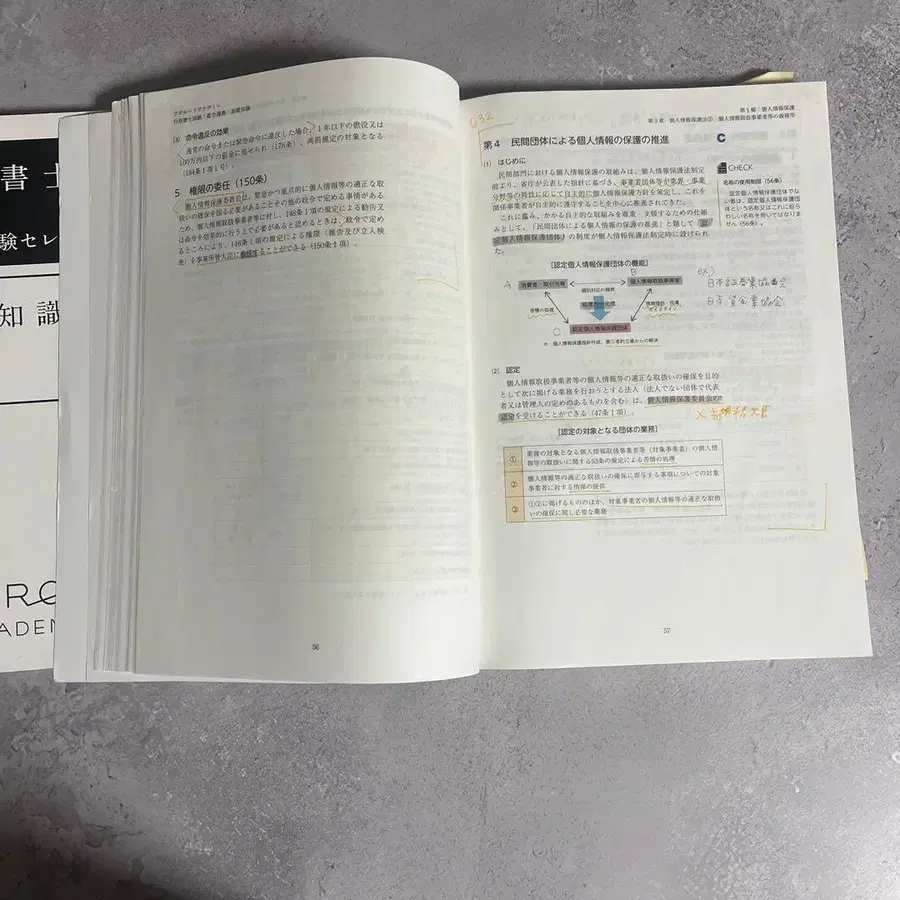 書士
験セレ
知識
RO
ADEM
アガルートアカデミー
行政書士試験│総合講義│基礎知識
(3) 命令違反の効果
通常の命令または緊急命令に違反した場合,1年以下の懲役又は
100万円以下の罰金に処せられ(178条),両罰規定の対象となる
(184条1項1号)。
5 権限の委任(150条)
個人情報保護委員会は,緊急かつ重点的に個人情報等の適正な取
扱いの確保を図る必要があることその他の政令で定める事情がある
ため,個人情報取扱事業者等に対し,148条1項の規定による勧告又
は命令を効果的に行う上で必要があると認めるときは,政令で定め
るところにより,146条1項の規定による権限(報告及び立入検
査)を事業所管大臣に委任することができる(150条1項)。
56
032
第1編 個人情報保護
第3章 個人情報保護法② 個人情報取扱事業者等の義務等
第4 民間団体による個人情報の保護の推進
C
(1) はじめに
民間部門における個人情報保護の取組みは,個人情報保護法制定
前より,省庁が公表した指針に基づき,事業者団体等が業界・事業
分野等の特性に応じて自主的に個人情報保護方針を策定し,これを
関係事業者が自主的に遵守することを中心に推進されてきた。
これに鑑み,かかる自主的な取組みを尊重・支援するための仕組
みとして,「民間団体による個人情報の保護の推進」と題して「認
定個人情報保護団体」の制度が個人情報保護法制定時に設けられ
た。
CHECK
名称の使用制限(56条)
認定個人情報保護団体でな
い者は,認定個人情報保護団
体という名称又はこれに紛ら
わしい名称を用いてはなりま
せん(56条)。
[認定個人情報保護団体の機能]
A 消費者/取引先等
B 個人情報取扱事業者
個別対応の限界
苦情の処理
情報提供・指導
ガイドライン
C 認定個人情報保護団体
※ 個人情報保護指針作成,第三者的立場からの解決
ex)
日本証券業協会
日本貸金業協会
(2) 認定
個人情報取扱事業者等の個人情報等の適正な取扱いの確保を目的
として次に掲げる業務を行おうとする法人(法人でない団体で代表
者又は管理人の定めのあるものを含む)は,個人情報保護委員会の
認定を受けることができる(47条1項)。
×総務大臣
[認定の対象となる団体の業務]
① 業務の対象となる個人情報取扱事業者等(対象事業者)の個人情
報等の取扱いに関する53条の規定による苦情の処理
② 個人情報等の適正な取扱いの確保に寄与する事項についての対象
事業者に対する情報の提供
③ ①②に掲げるもののほか,対象事業者の個人情報等の適正な取扱
いの確保に関し必要な業務
57